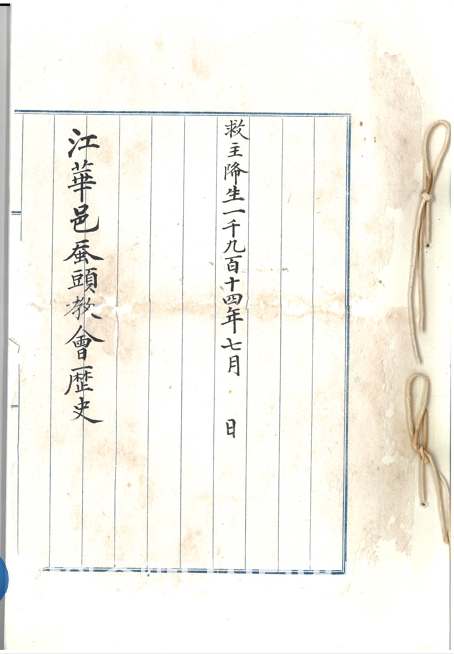 救主降生一千九百十四年七月 日
江華邑蚕頭教會歷史